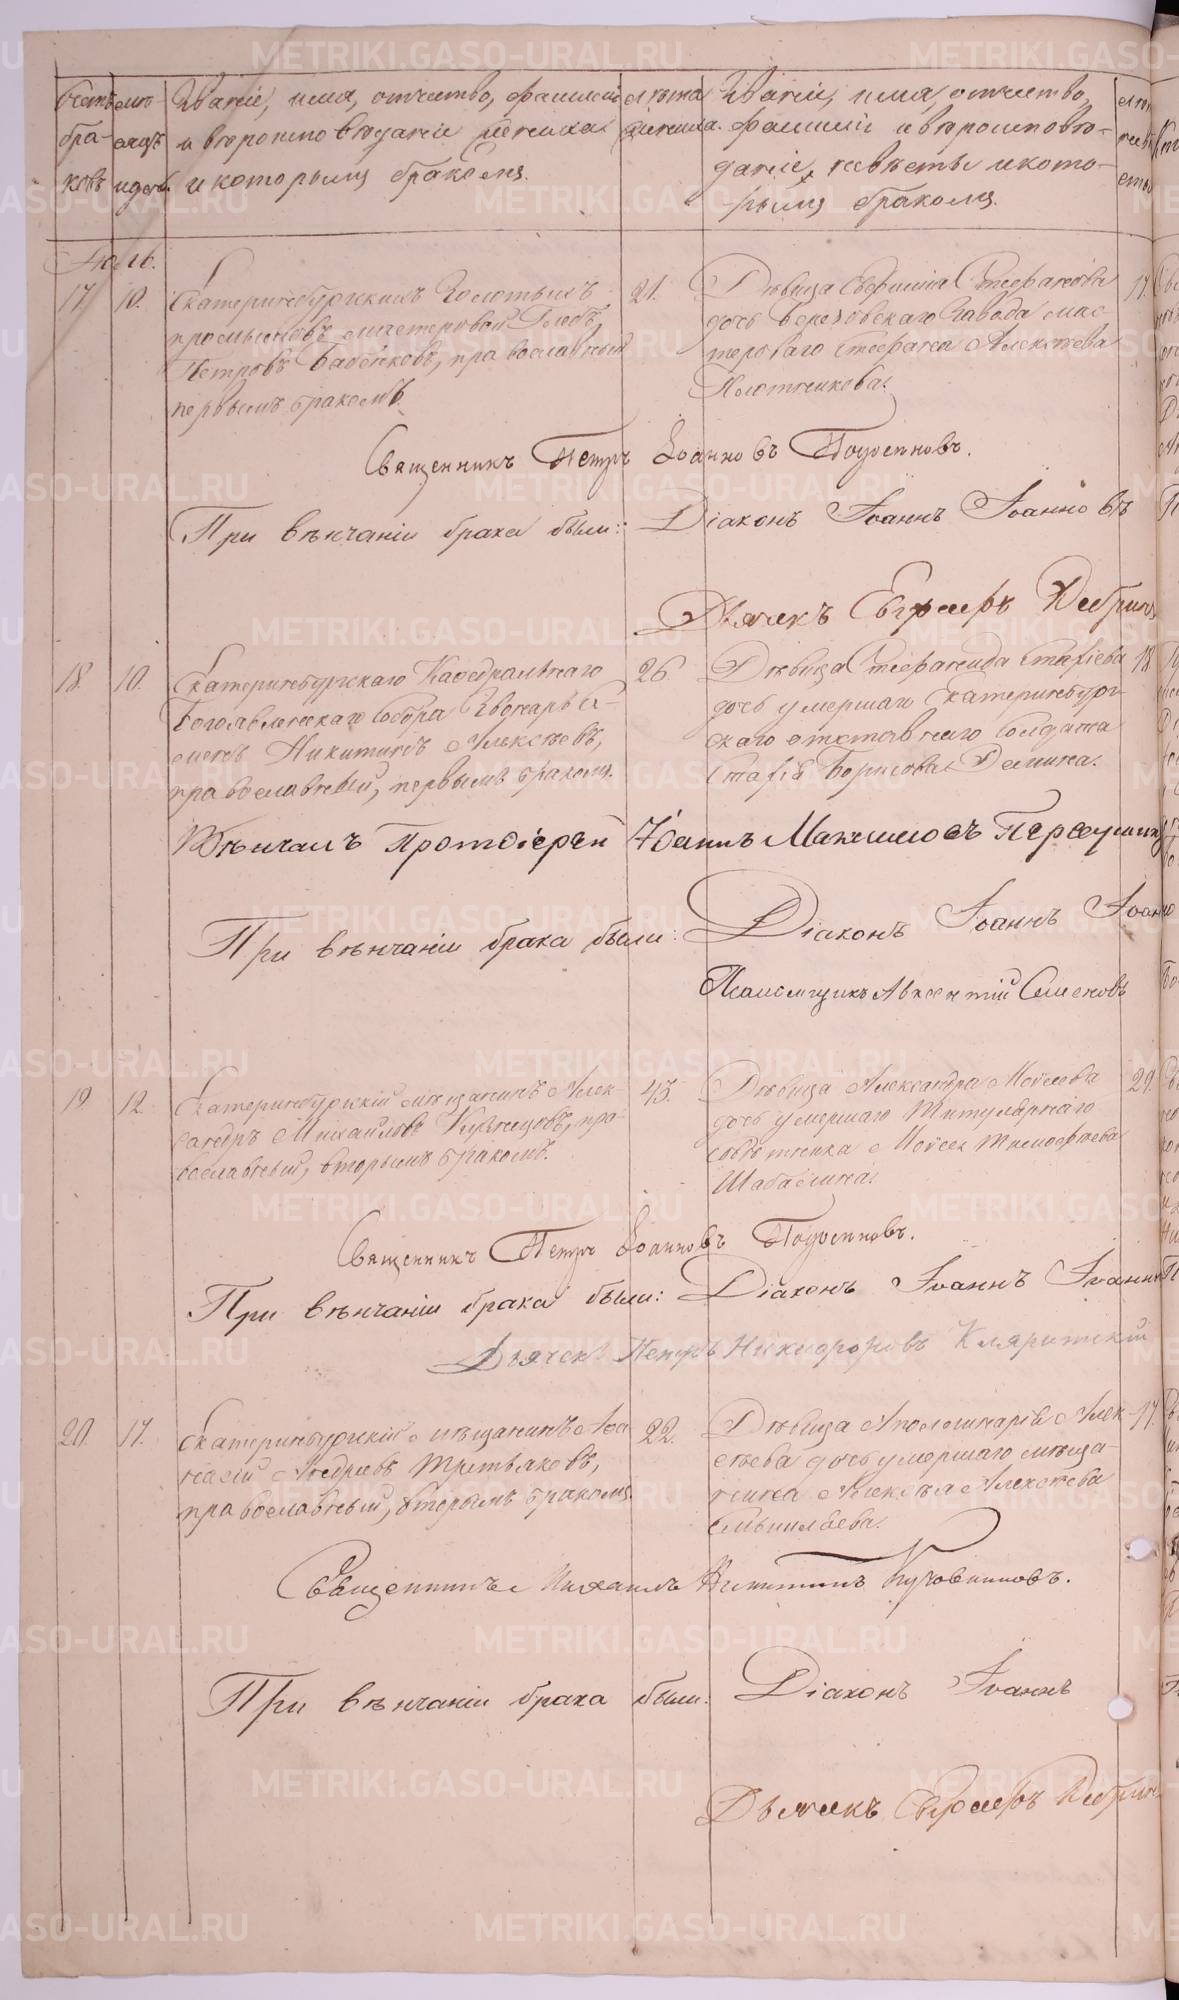 Счетъ бра- ковъ
мѣ- сяцъ и день.
Званіе, имя, отчество, фамилія
и вѣроисповѣданіе жениха
и которымъ бракомъ.
лѣта жениха.
Званіе, имя, отчество,
фамилія и вѣроисповѣ-
даніе невѣсты и кото-
рымъ бракомъ.
Іюль.
17
10.
Екатеринбургскихъ Золотыхъ
промысловъ мастеровой Глѣбъ
Петровъ Бабенковъ, православный
первымъ бракомъ.
21.
Дѣвица Евфимія Стефанова
дочь Березовскаго Завода мас-
тероваго Стефана Алексѣева
Плотникова.
17.
Священникъ Петръ Іоанновъ
При вѣнчаніи брака были: Діаконъ Іоаннъ Іоанновъ
Дьячекъ Евграфъ
18.
10.
Екатеринбургскаго Каѳедральнаго
Богоявленскаго Собора Звонарь Се-
менъ Никитинъ Алексѣевъ,
православный, первымъ бракомъ.
26.
Дѣвица Стефанида Стахіева
дочь умершаго Екатеринбург-
скаго отставнаго Солдата
Стахія Борисова Демина.
18.
Вѣнчалъ Протоіерей Іоаннъ Максимовъ Первушинъ
При вѣнчаніи брака были: Діаконъ Іоаннъ
Псаломщикъ Авксентій Семеновъ
19
12.
Екатеринбургскій мѣщанинъ Алек-
сандръ Михайловъ Кузнецовъ, пра-
вославный, вторымъ бракомъ.
43.
Дѣвица Александра Моисеева
дочь умершаго Титулярнаго
совѣтника Моисея Тимофеева
Шабалина.
29.
Священникъ Петръ Іоанновъ
При вѣнчаніи брака были: Діаконъ Іоаннъ
Дьячекъ Петръ Никифоровъ Кляритскій
20.
17.
Екатеринбургскій мѣщанинъ Аѳа-
насій Андреевъ Третьяковъ,
православный, вторымъ бракомъ.
22.
Дѣвица Аполлинарія Алек-
сѣева дочь умершаго мѣща-
нина Алексѣя Алексѣева
17.
Священникъ Михаилъ Никитинъ
При вѣнчаніи брака были: Діаконъ Іоаннъ
Дьячекъ Евграфъ
METRIKI.GASO-URAL.RU